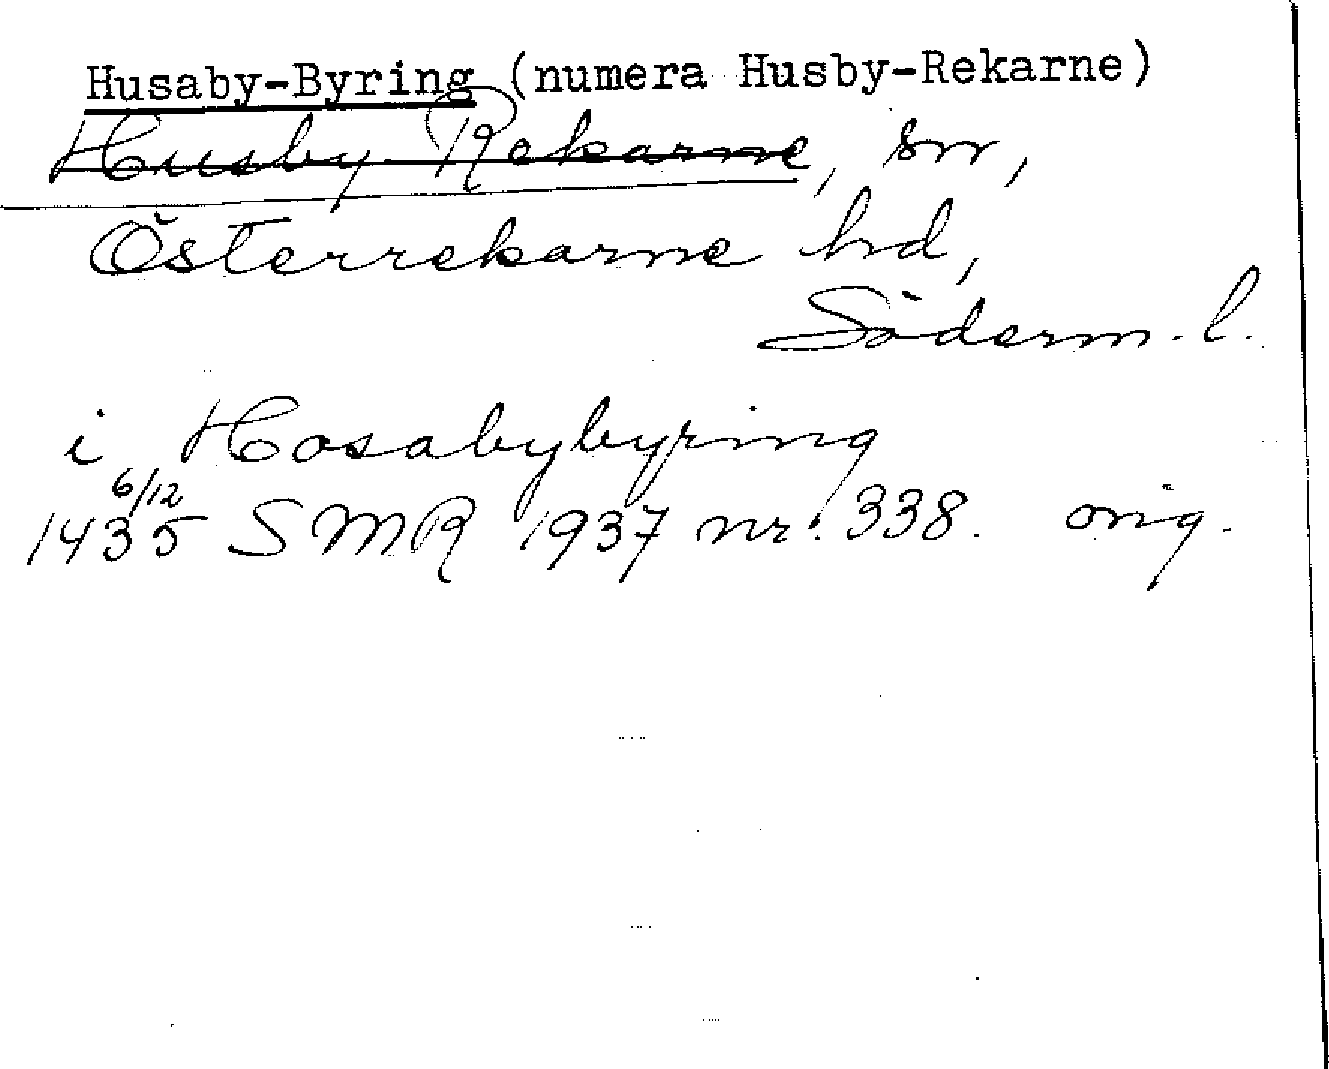 Husaby-Byring (numera Husby-Rekarne)
Husby Rekarne, sn,
Österrekarne hd,
Söderm. l.
i Hosabybyring
6/12
1435 SMR 1937 nr. 338. orig.